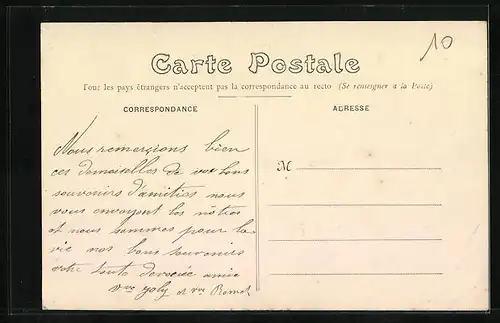 10
Carte Postale
Tous les pays étrangers n'acceptent pas la correspondance au recto (Se renseigner à la Poste)
CORRESPONDANCE
ADRESSE
Nous remerçions bien
ces demoiselles de vos bons
souvenirs d'amitiés nous
vous envoyont les nôtres
et nous sommes pour la
vie nos bons souvenirs
votre toute devouée amie
Vve Joly et
M